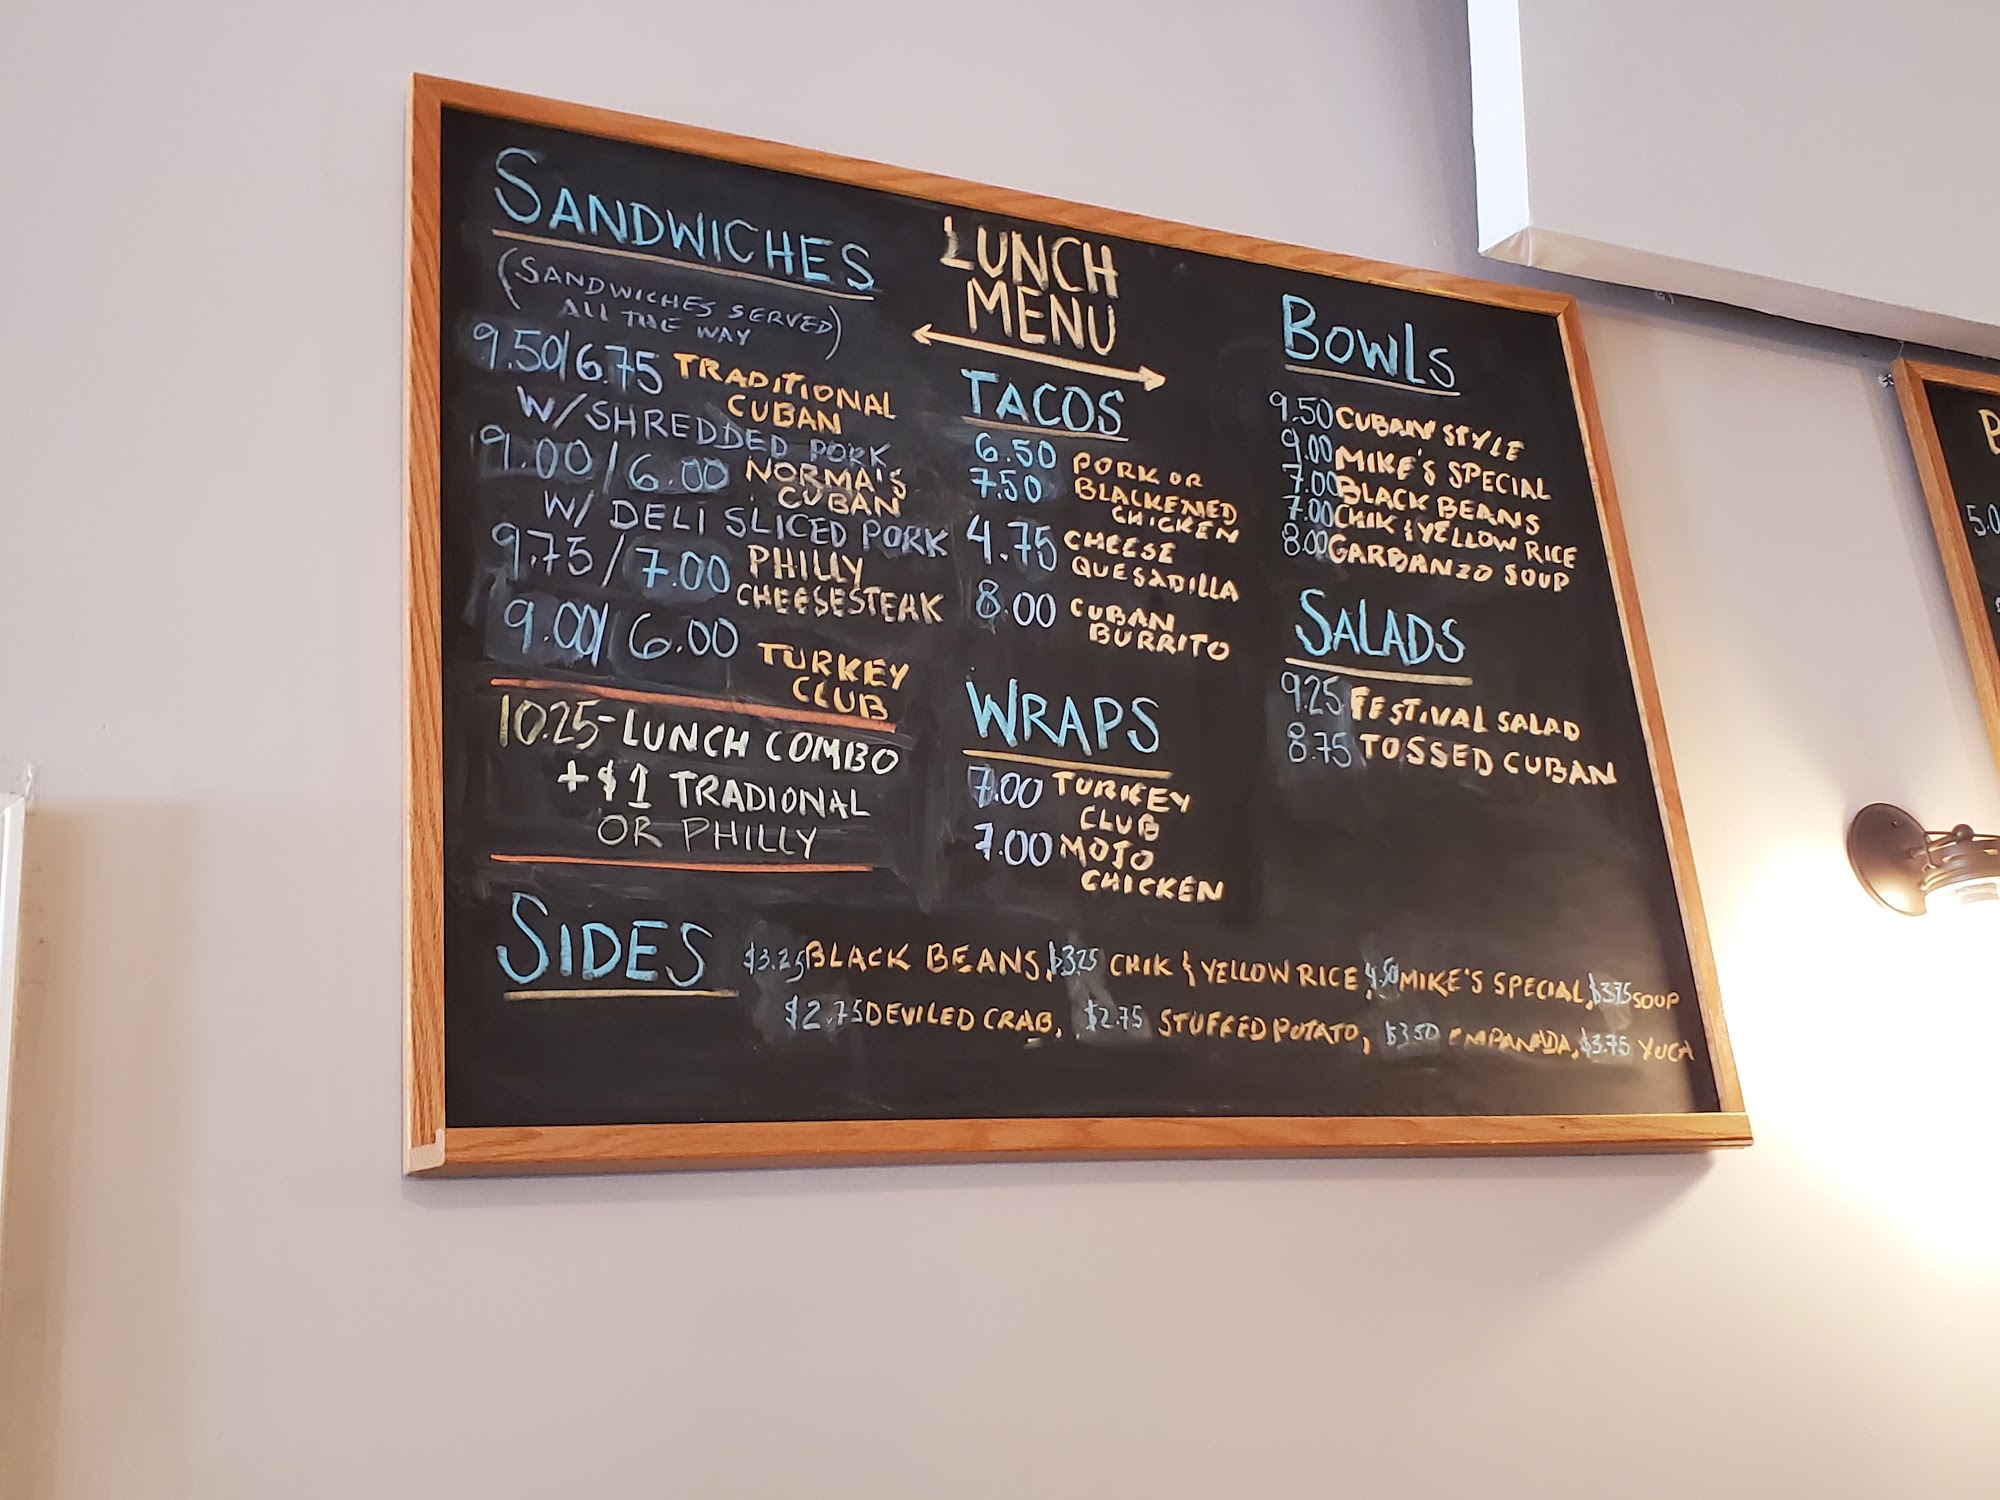 SANDWICHES
(SANDWICHES SERVED
ALL THE WAY)
9.50/6.75 TRADITIONAL
CUBAN
W/SHREDDED PORK
9.00/6.00 NORMA'S
CUBAN
W/ DELI SLICED PORK
9.75/7.00 PHILLY
CHEESESTEAK
9.00/6.00 TURKEY
CLUB
10.25-LUNCH COMBO
+$1 TRADIONAL
OR PHILLY
LUNCH
MENU
TACOS
6.50 PORK OR
7.50 BLACKENED
CHICKEN
4.75 CHEESE
QUESADILLA
8.00 CUBAN
BURRITO
WRAPS
7.00 TURKEY
CLUB
7.00 MOJO
CHICKEN
BOWLS
9.50 CUBAN STYLE
9.00 MIKE'S SPECIAL
7.00 BLACK BEANS
7.00 CHIK & YELLOW RICE
8.00 GARBANZO SOUP
SALADS
9.25 FESTIVAL SALAD
8.75 TOSSED CUBAN
SIDES
$3.25 BLACK BEANS, $3.25 CHIK & YELLOW RICE, 4.50 MIKE'S SPECIAL, $3.75 SOUP
$2.75 DEVILED CRAB, $2.75 STUFFED POTATO, $3.50 EMPANADA, $3.75 YUCA